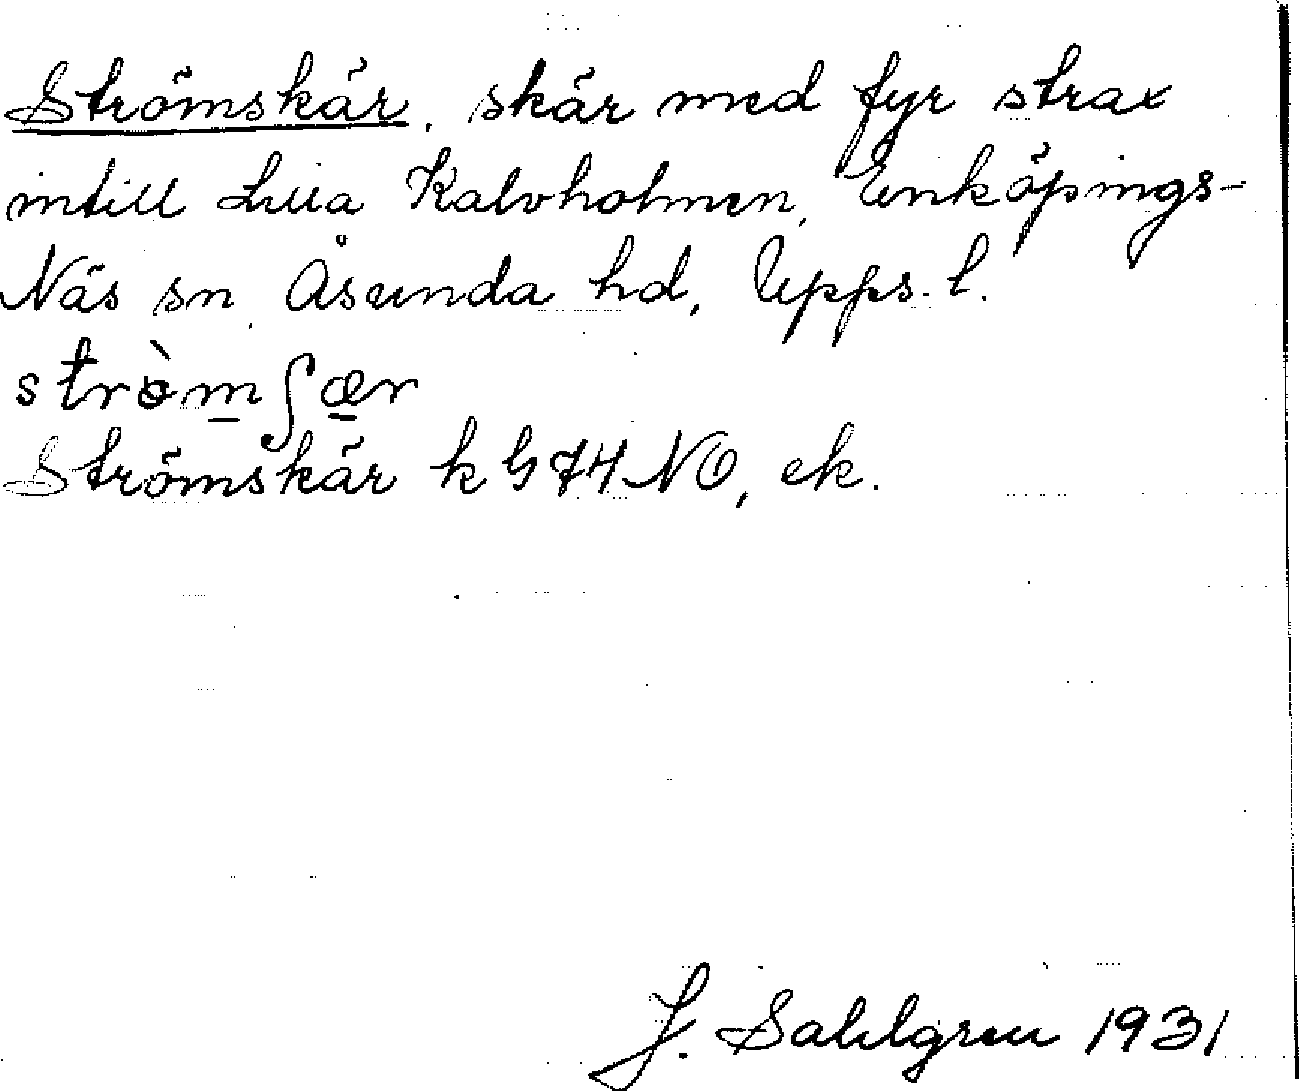 Strömskär, skär med fyr strax
intill Lilla Kalvholmen, Enköpings-
Näs sn, Åsunda hd, Upps. l.
strò̀m̲ʃæ̲r
Strömskär k G 74 NO, ek.
J. Sahlgren 1931